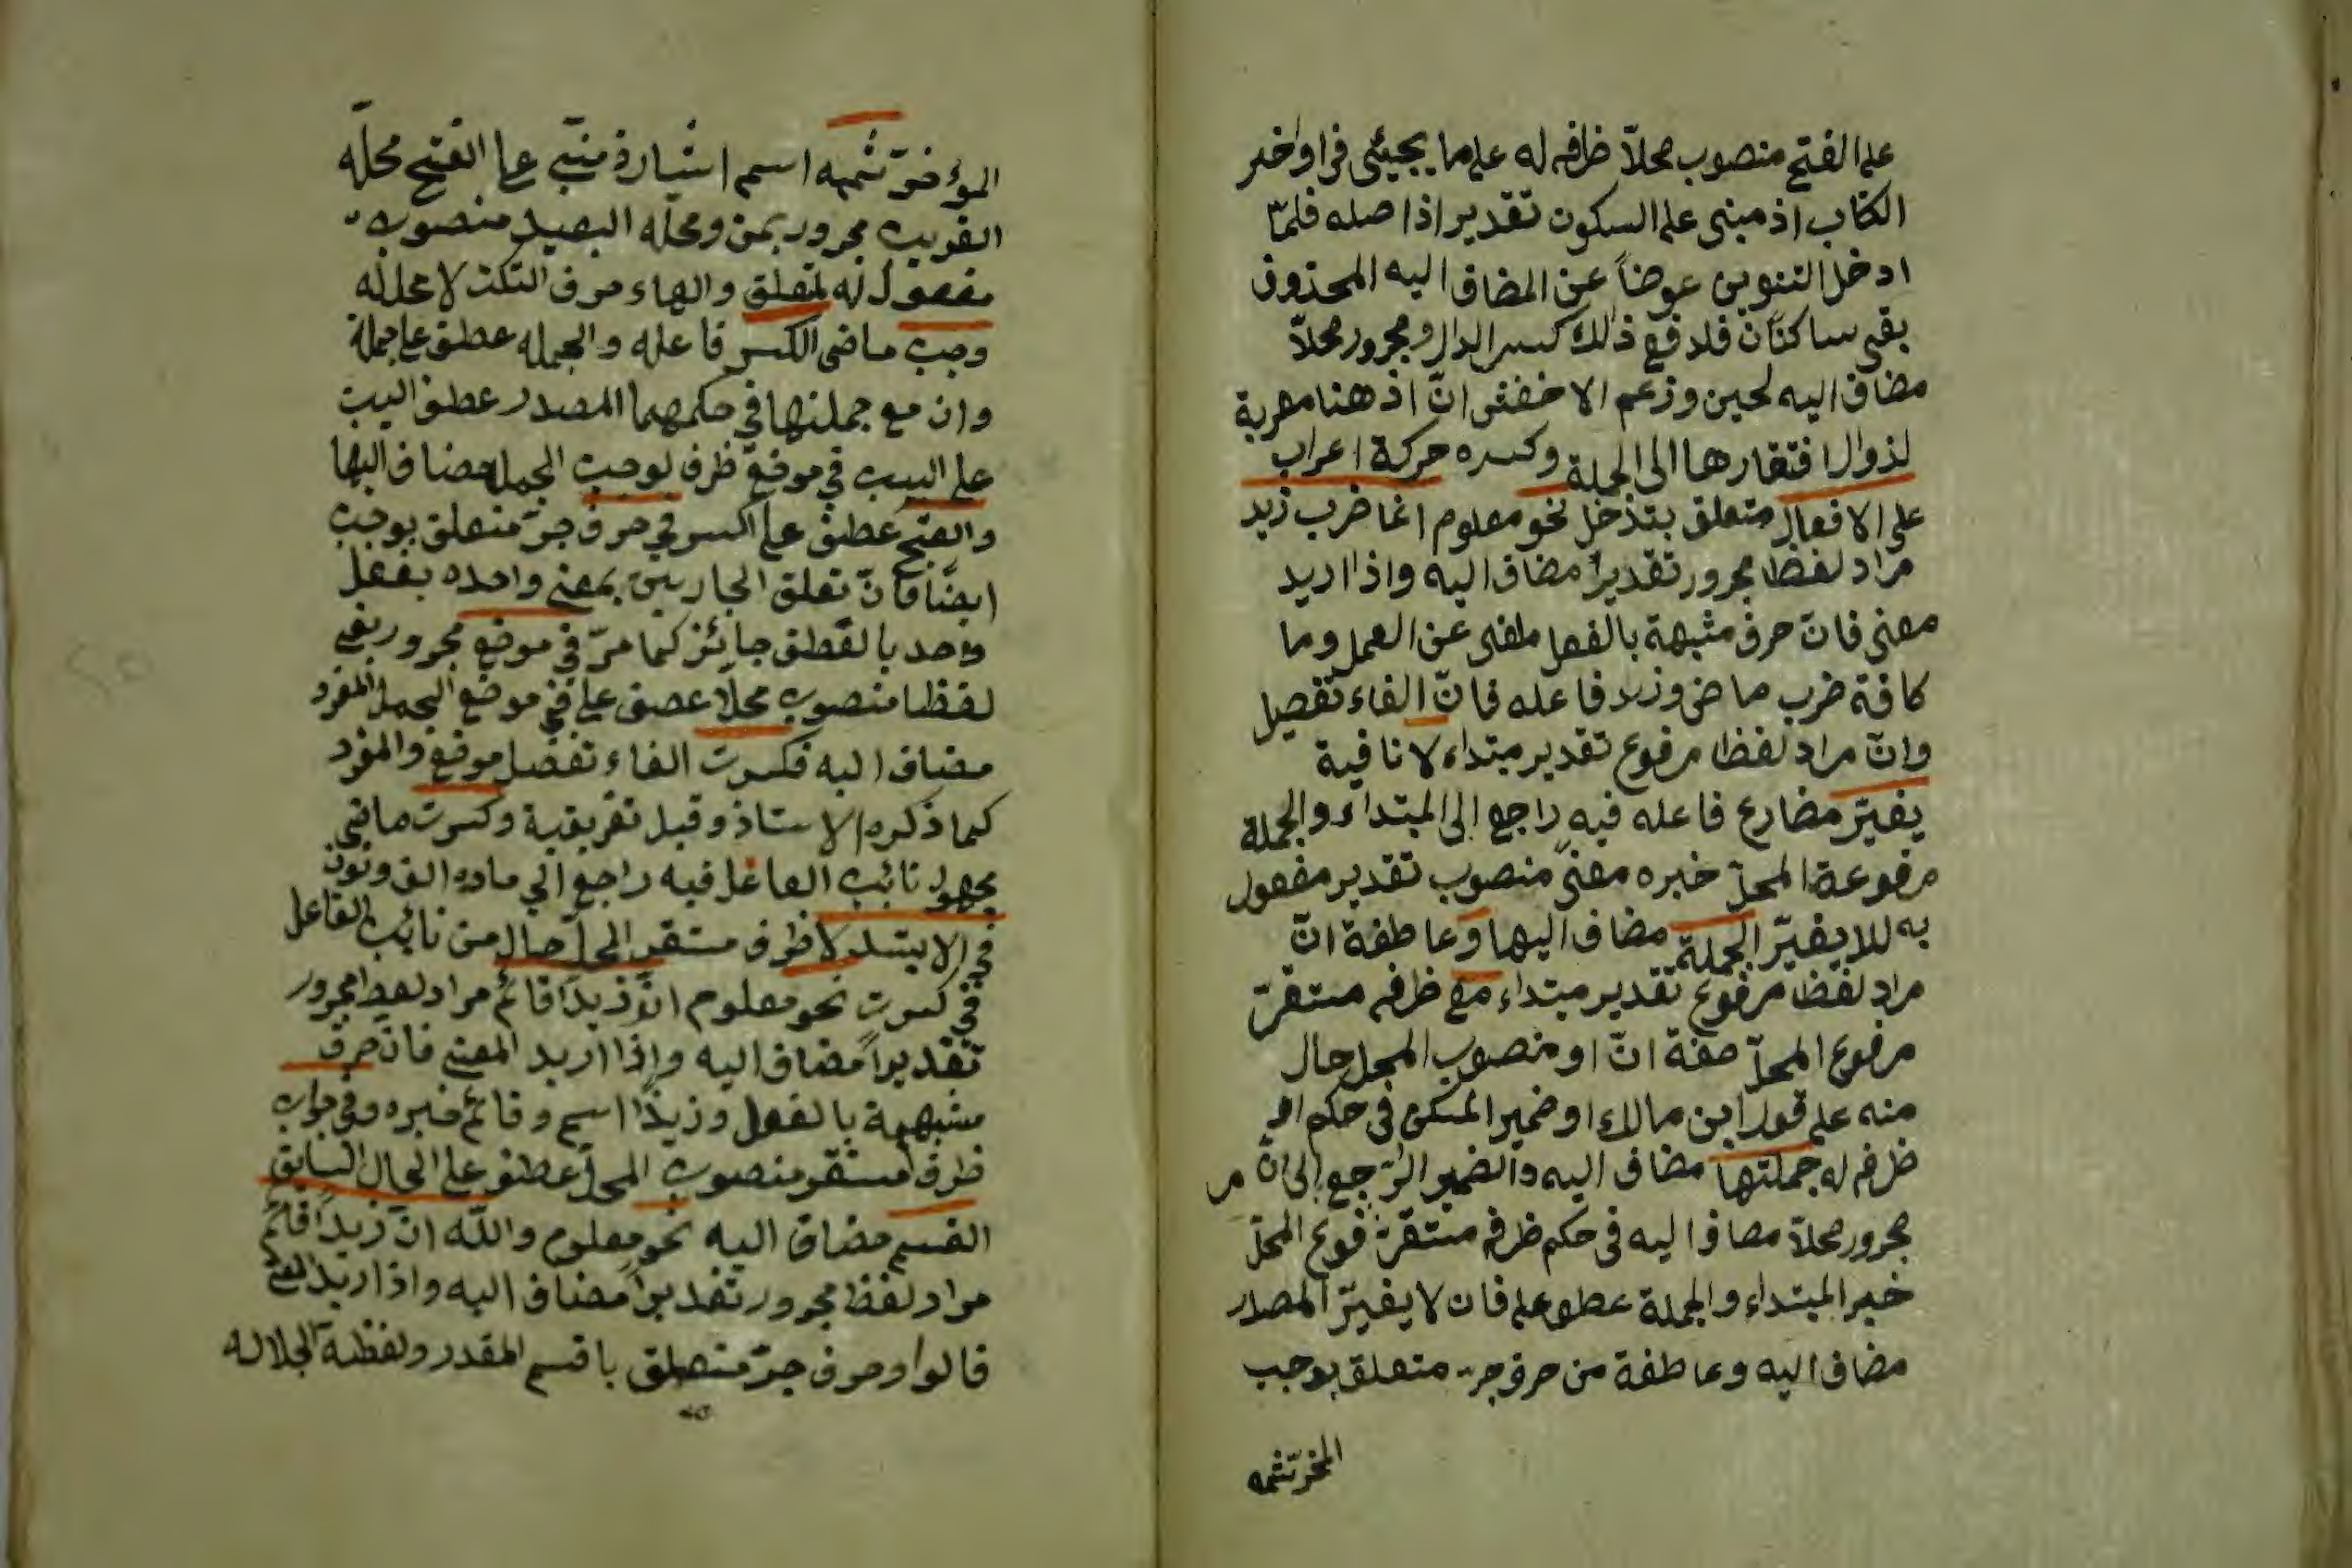 على الفتح منصوب محلاّ ظرف له على ما يجيئى فى اواخر
الكتاب اذ مبنى على السكون تقدير اذا صله فلمّا
ادخل التنوين عوضاً عن المضاف اليه المحذوف
بقى ساكنان فلدفع ذلك كسر الدال ومجرور محلاّ
مضاف اليه لحين وزعم الاخفش انّ اذ هنا معربة
لزوال افتقارها الى الجملة وكسره حركة اعراب
على الافعال متعلق بتدخل نحو معلوم انما ضرب زيد
مراد لفظا مجرور تقديراً مضاف اليه واذا اريد
معنى فانّ حرف مشبهة بالفعل ملغى عن العمل وما
كافة ضرب ماض وزيد فاعله فانّ الفاء تفصيل
وانّ مراد لفظا مرفوع تقدير مبتداء لا نافية
يغيّر مضارع فاعله فيه راجع الى المبتداء والجملة
مرفوعة المحلّ خبره معنىً منصوب تقدير مفعول
به للا يغيّر الجملة مضاف اليها وعاطفة انّ
مراد لفظا مرفوع تقدير مبتداء مع ظرف مستقرّ
مرفوع المحلّ صفة انّ او منصوب المحل حال
منه على قول ابن مالك او ضمير المسكن فى حكم
ظرف له جملتها مضاف اليه والضمير الرّجع الى انّ
مجرور محلاّ مضاف اليه فى حكم ظرف مستقرّ فوع المحلّ
خبر المبتداء والجملة عطف على فان لا يغيّر المصدر
مضاف اليه وعاطفة من حرف جر متعلق بوجب
المؤخر ثمه اسم اشارة مبنى على الفتح محلّه
القريب مجرور بمن ومحله البعيد منصوب
مفعول له لمتعلق والهاء حرف السكت لا محل له
وجب ماضى الكسر فاعله والجمله عطف على جملة
وان مع جملتها فى حكمهما المصدر عطف البيت
على البيت فى موضع ظرف لوجب الجمل مضاف اليها
والفتح عطف على الكسر فى حرف جرّ متعلق بوجب
ايضًا فانّ تعلق الجارين بمعنى واحده بفعل
وحد بالعطف جائز كما مرّ فى موضع مجرور بفى
لفظا منصوب محلا عطف على فى موضع الجمل المفرد
مضاف اليه فكسرت الفاء تفصل موضع والمفرد
كما ذكره الاستاذ وقيل تفريقية وكسرت ماضى
مجهول نائب الفاعل فيه راجع الى ماده الف ونون
فى الابتداء ظرف مستقر المحل حال من نائب الفاعل
فى كسرت نحو معلوم انّ زيدًا قائم مراد لفظا مجرور
تقديراً مضاف اليه واذا اريد المعنى فان حرف
مشبهة بالفعل وزيدًا اسم وقائم خبره وفى جواب
ظرف مستقر منصوب المحل عطف على الحال السابق
القسم مضاف اليه نحو معلوم والله انّ زيداً قائم
مراد لفظ مجرور تقديراً مضاف اليه واذا اريد المعنى
قالوا وحرف جرّ متعلق باقسم المقدر ولفظة الجلاله